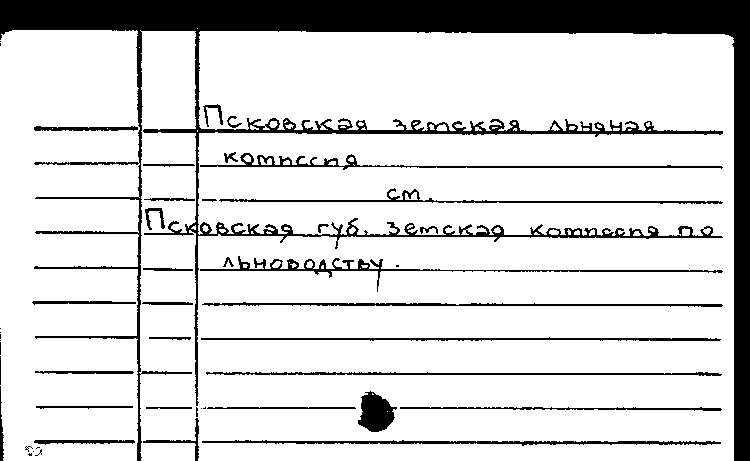 Псковская земская льняная
комиссия
см.
Псковская губ. земская комиссия по
льноводству.